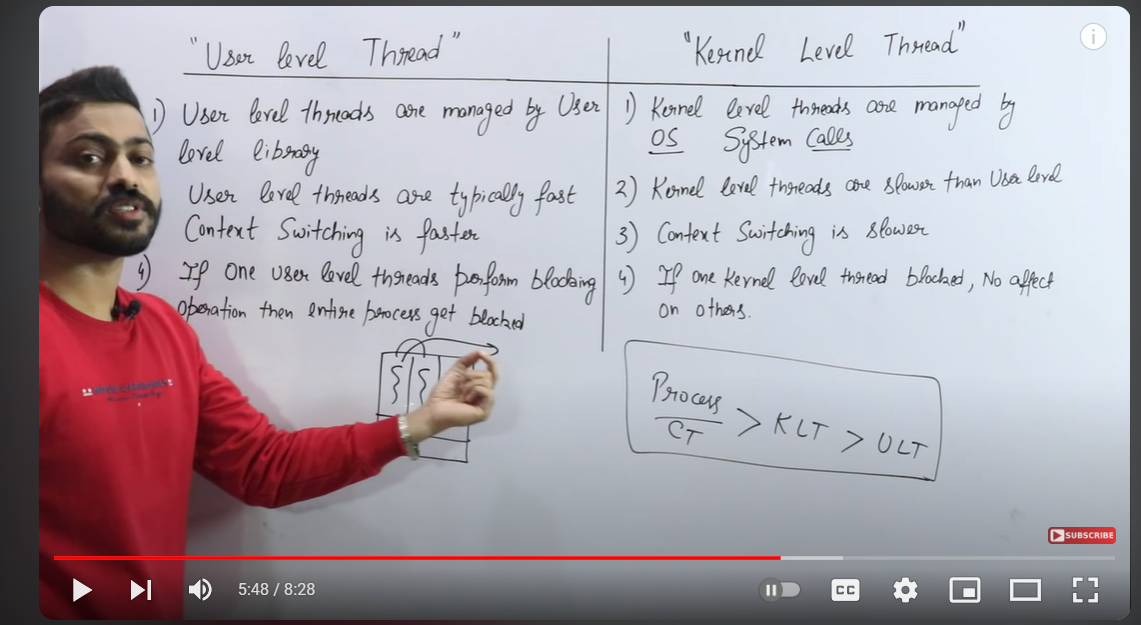 "User level Thread"
"Kernel Level Thread"
1) User level threads are managed by User
level library
User level threads are typically fast
Context Switching is faster
4) If one user level threads perform blocking
operation then entire process get blocked
1) Kernel level threads are managed by
OS System Calls
2) Kernel level threads are slower than User level
3) Context Switching is slower
4) If one Kernel level thread blocked, No affect
on others.
Process
CT > KLT > ULT
SUBSCRIBE
5:48 / 8:28
CC